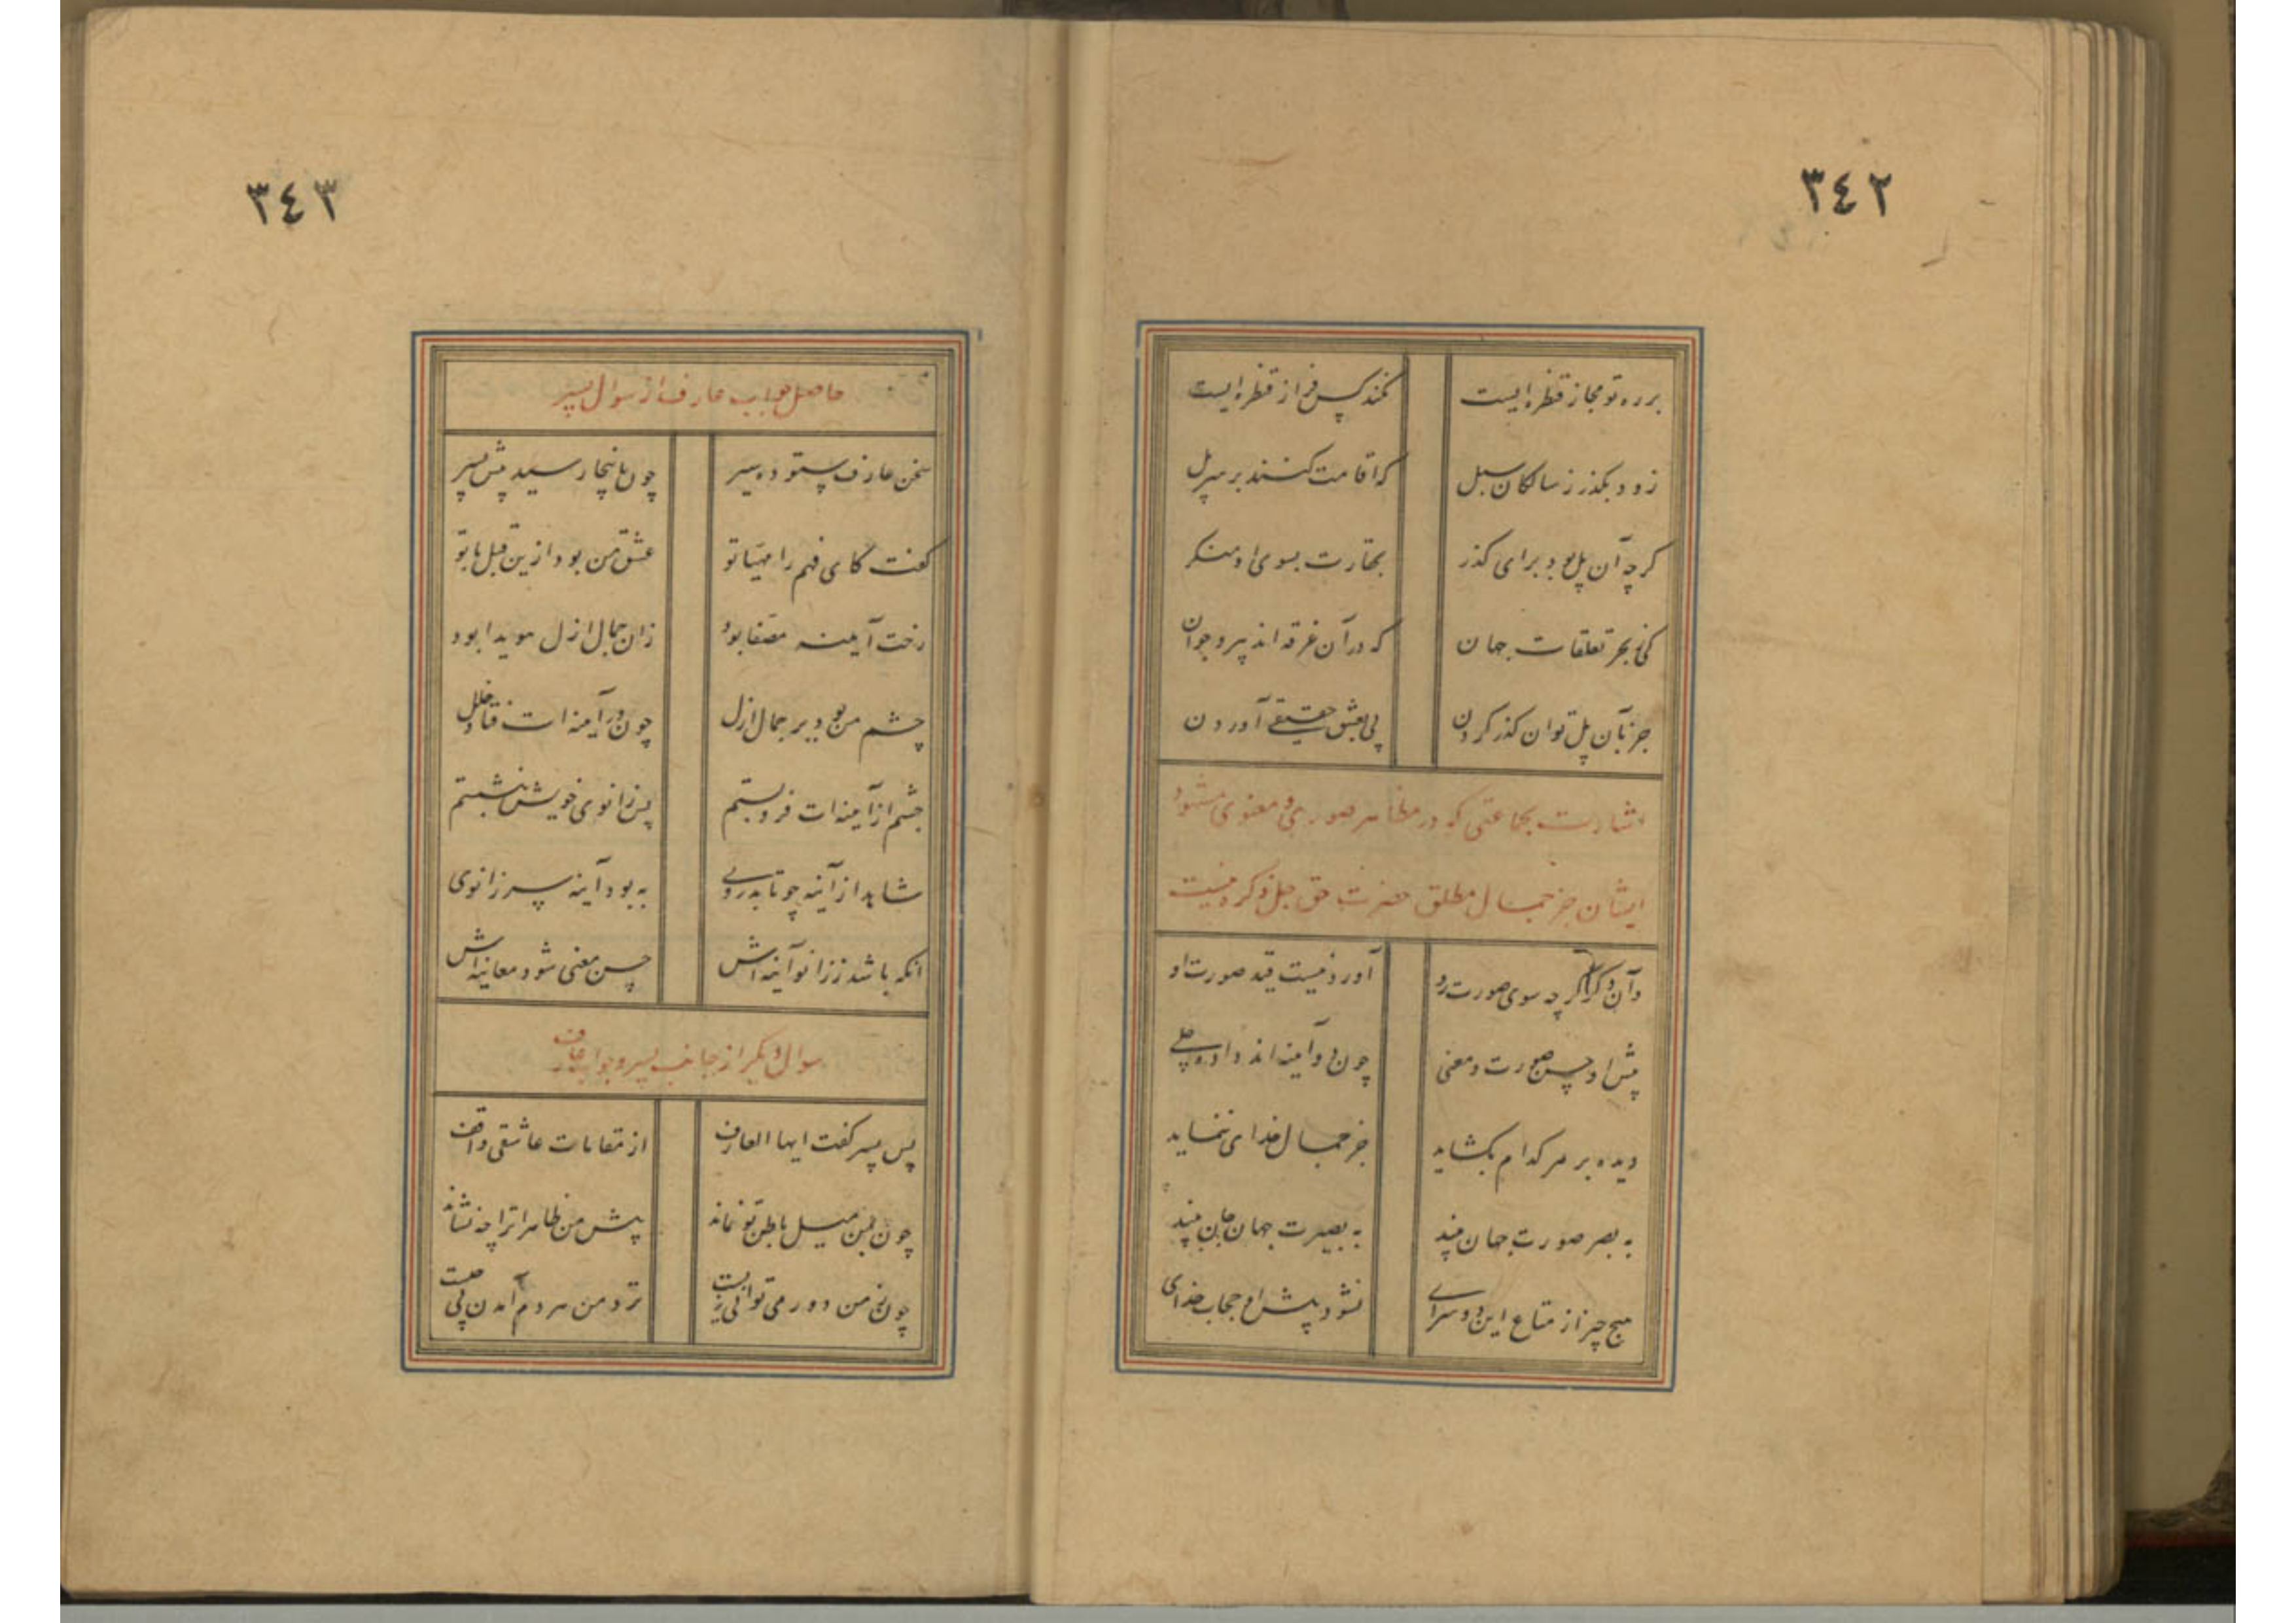 ٣٤٢
بر ره تو مجاز قنطره ایست
نکند کس فرازِ قنطره ایست
زود بگذر ز سالکان سبل
که اقامت کنند بر سر پل
گرچه آن پل بود برای گذر
بحقارت بسوی او منگر
کز بحر تعلقات جهان
که در آن غرقه اند پیر و جوان
جز بآن پل توان گذر کردن
پی بعشق حقیقی آوردن
اشارت بجماعتی که در مظاهر صوری و معنوی مشهود
ایشان جز جمال مطلق حضرت حق جل ذکره نیست
وآن دگر را گرچه سوی صورت رو
آورد نیست قید صورت او
پیش او حسن صورت و معنی
چون دو آینه اند داده جلی
دیده بر هر کدام بگشاید
جز جمال خدای ننماید
به بصر صورت جهان بیند
به بصیرت جهان جان بیند
هیچ چیز از متاع این دو سرای
نشود پیش او حجاب خدای
٣٤٣
حاصل جواب عارف از سوال پسر
سخن عارف ستوده سیر
چون باینجا رسید پیش پسر
گفت کای فهم را مهیا تو
عشق من بود ازین قبل با تو
رخت آینه مصفا بود
زان جمال ازل هویدا بود
چشم من بود بر جمال ازل
چون در آینه ات فتاد خلل
چشم از آینه ات فرو بستم
پس زانوی خویش بنشستم
شاهد از آینه چو تابد روی
به بود آینه سر زانوی
آنکه باشد ز زانو آینه اش
حسن معنی شود معاینه اش
سوال دیگر از جانب پسر و جواب عارف
پس پسر گفت ایها العارف
از مقامات عاشقی واقف
چون بمن میل باطن تو نماند
پیش من ظاهرا ترا چه نشاند
چون ز من دور می توانی زیست
نزد من هر دم آمدن پی چیست